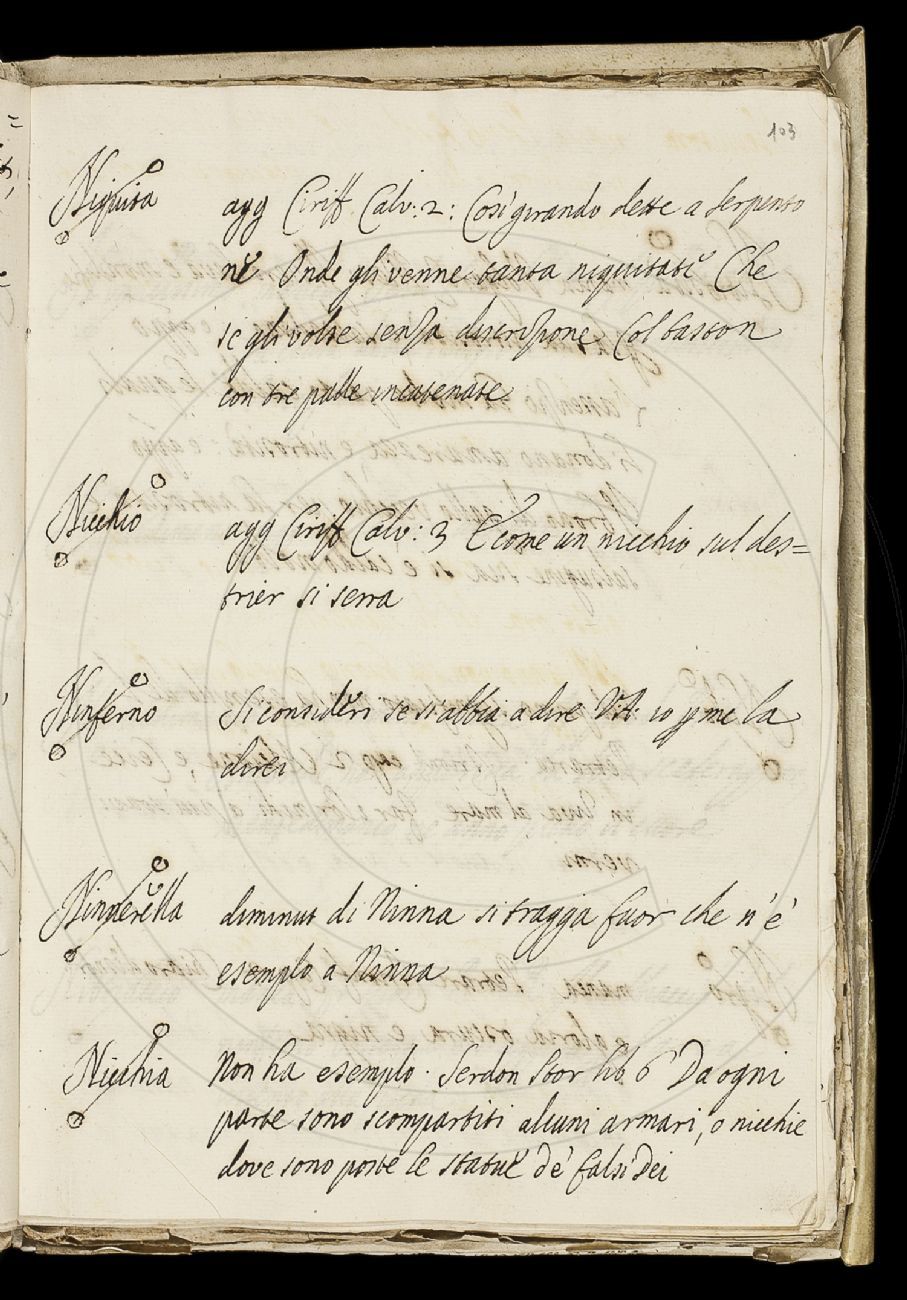 103
Niquita agg Ciriff. Calv: 2: Cosi girando dette a Serpento
ne Onde gli venne tanta niquitate Che
se gli volse senza discrizione Col baston
con tre palle incatenate
Nicchio agg Ciriff Calv: 3 E come un nicchio sul des=
trier si serra
Ninferno Si consideri se si abbia a dire V.A. io p me la
direi
Ninnerella diminut di Ninna si tragga fuor che n'è
esemplo a Ninna
Nicchia Non ha esemplo. Serdon Stor lib 6 Da ogni
parte sono scompartiti alcuni armari, o nicchie
dove sono poste le statue de' falsi Dei